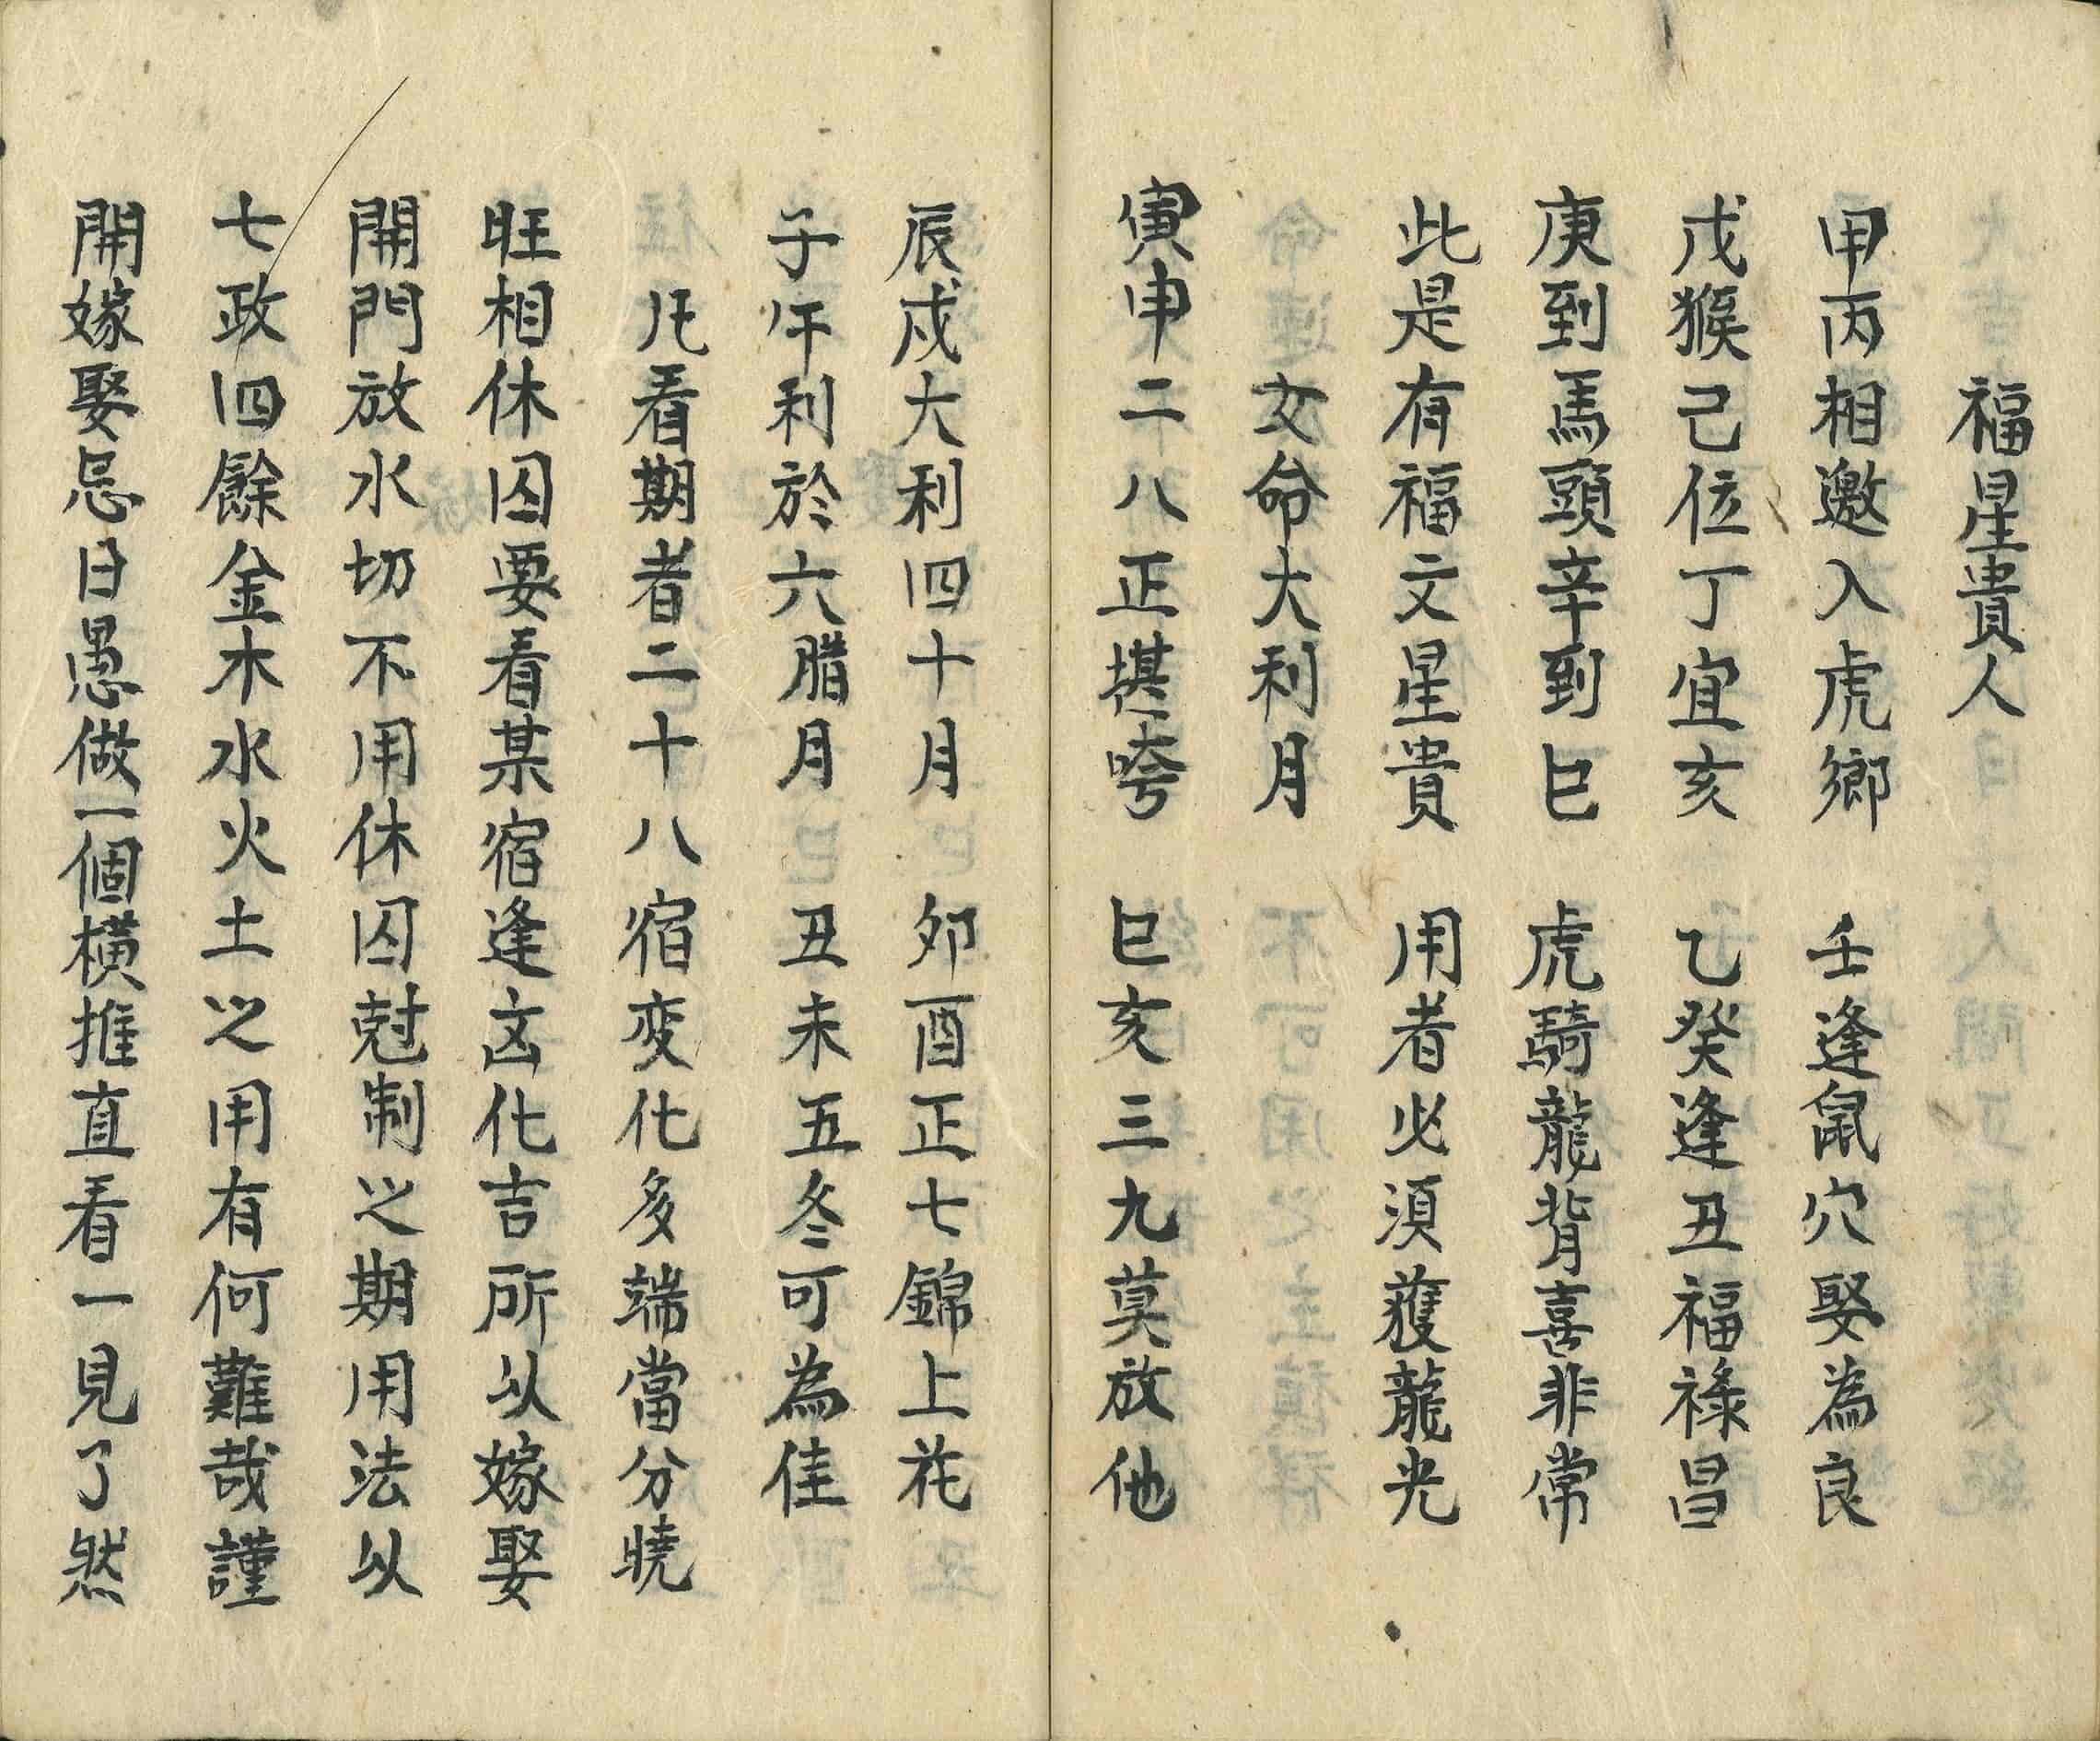 福星貴人
甲丙相邀入虎鄉 壬逢鼠穴娶為良
戊猴己位丁宜亥 乙癸逢丑福祿昌
庚到馬頭辛到巳 虎騎龍背喜非常
此是有福文星貴 用者必須獲龍光
女命大利月
寅申二八正堪誇 巳亥三九莫放他
辰戌大利四十月 夘酉正七錦上花
子午利於六腊月 丑未五冬可為佳
凡看期者二十八宿变化多端當分曉
旺相休囚要看某宿逢凶化吉所以嫁娶
開門放水切不用休囚尅制之期用法以
七政四餘金木水火土之用有何難哉謹
開嫁娶忌日愚做一個橫推直看一見了然